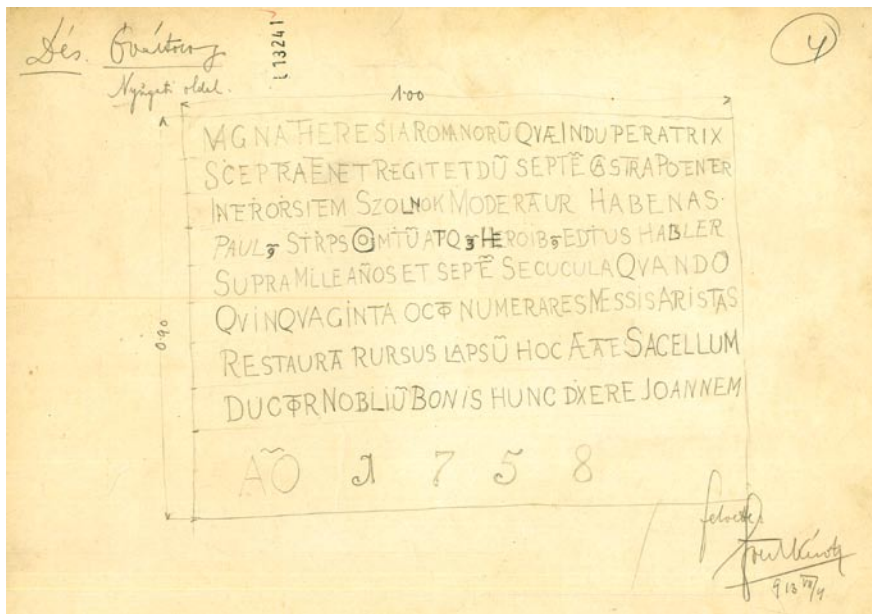 Dés. Óvártorony
L 13241
4
Nyugoti oldal.
1·00
MAGNA THERESIA ROMANORŨ QVÆ INDUPERATRIX
SCEPTRA TENET REGIT ET DŨ SEPTẼ CASTRA POTENTER
INTERORSITEM SZOLNOK MODERATUR HABENAS·
PAUL9 STIRPS COMITŨ ATQ3 HEROIB9 EDITUS HALLER
SUPRA MILLE AÑOS ET SEPTẼ SECUCULA QVANDO
QVINQVAGINTA OCTO NUMERARES MESSIS ARISTAS
0·90
RESTAURAT RURSUS LAPSŨ HOC ÆTATE SACELLUM
DUCTOR NOBILIŨ BONIS HUNC DIXERE JOANNEM
AÕ 1 7 5 8
felvette
913 VII/4